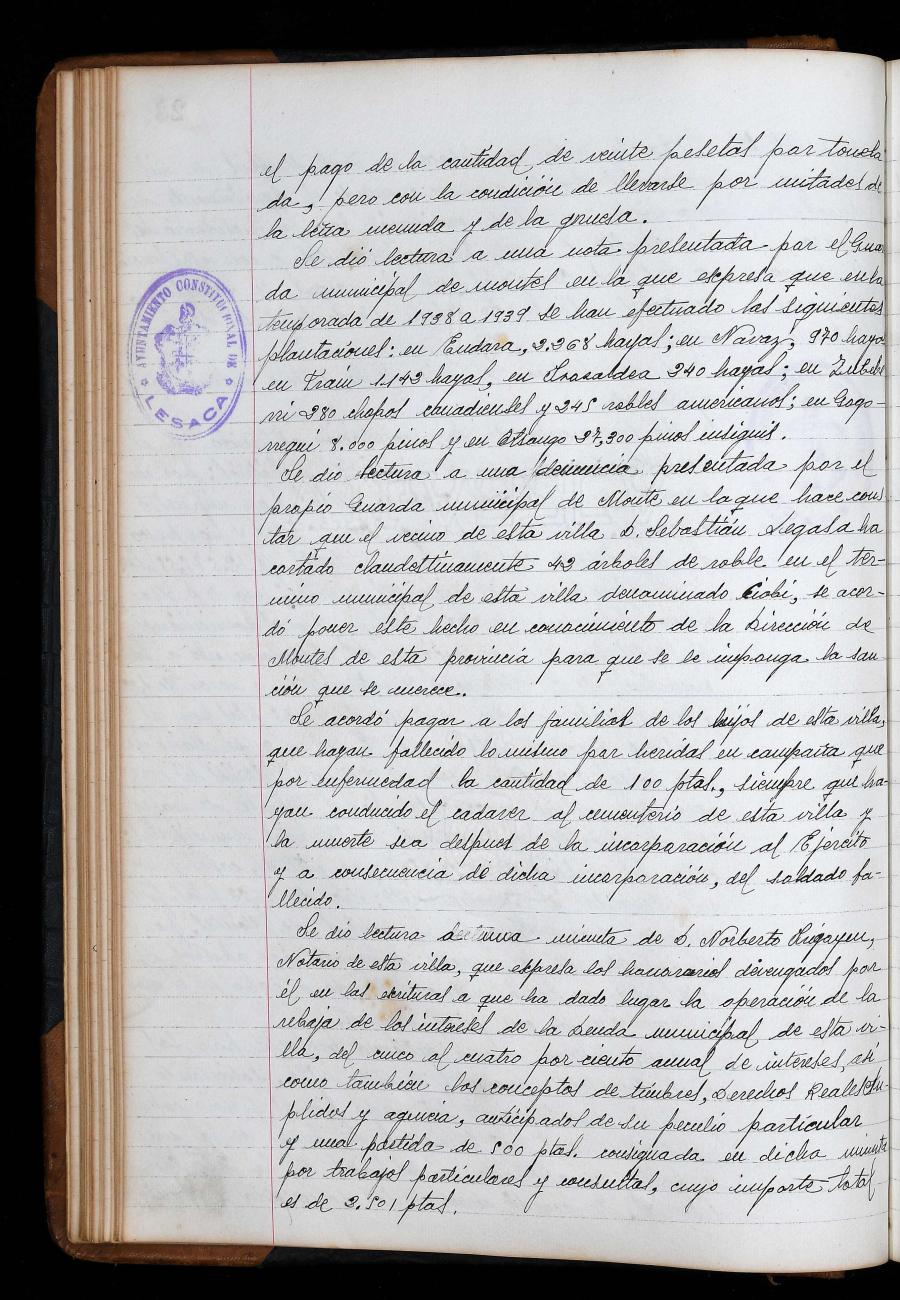 el pago de la cantidad de veinte pesetas por tonela
da, pero con la condición de llevarse por mitades de
la leña menuda y de la gruesa.
Se dió lectura a una nota presentada por el Guar
da municipal de montes en la que expresa que en la
temporada de 1938 a 1939 se han efectuado las siguientes
plantaciones: en Endara, 2.268 hayas; en Navaz, 970 hayas
en Frain 1.142 hayas, en 240 hayas; en Zubel
rri 280 chopos canadienses y 245 robles americanos; en Gogo-
rregui 8.000 pinos y en 27,300 pinos insignis.
Se dio lectura a una denuncia presentada por el
propio Guarda municipal de Monte en la que hace cons
tar que el vecino de esta villa D. Sebastián Legasa ha
cortado clandestinamente 42 árboles de roble en el tér-
mino municipal de esta villa denominado Ciobi, se acor-
dó poner este hecho en conocimiento de la Dirección de
Montes de esta provincia para que se le imponga la san
ción que se merece.
Se acordó pagar a los familias de los hijos de esta villa,
que hayan fallecido lo mismo por heridas en campaña que
por enfermedad la cantidad de 100 ptas., siempre que ha-
yan conducido el cadaver al cementerio de esta villa y
la muerte sea despues de la incorporación al Ejército
y a consecuencia de dicha incorporación, del soldado fa-
llecido.
Se dio lectura minuta de D. Norberto Irigayen,
Notario de esta villa, que expresa los honorarios devengados por
él en las escrituras a que ha dado lugar la operación de la
rebaja de los intereses de la Deuda municipal de esta vi-
lla, del cinco al cuatro por ciento anual de intereses, así
como también los conceptos de timbres, Derechos Reales Su-
plidos y agencia, anticipados de su peculio particular
y una partida de 500 ptas. consignada en dicha minuta
por trabajos particulares y consultas, cuyo importe total
es de 2.501 ptas.
AYUNTAMIENTO CONSTITUCIONAL DE
LESACA